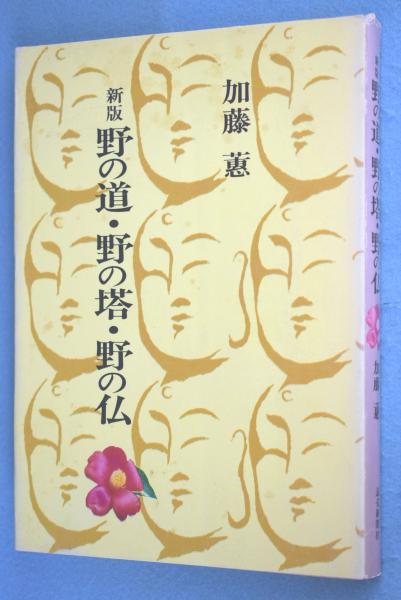 加藤 蕙
新版
野の道・野の塔・野の仏
新版
野の道・野の塔・野の仏
加藤 蕙